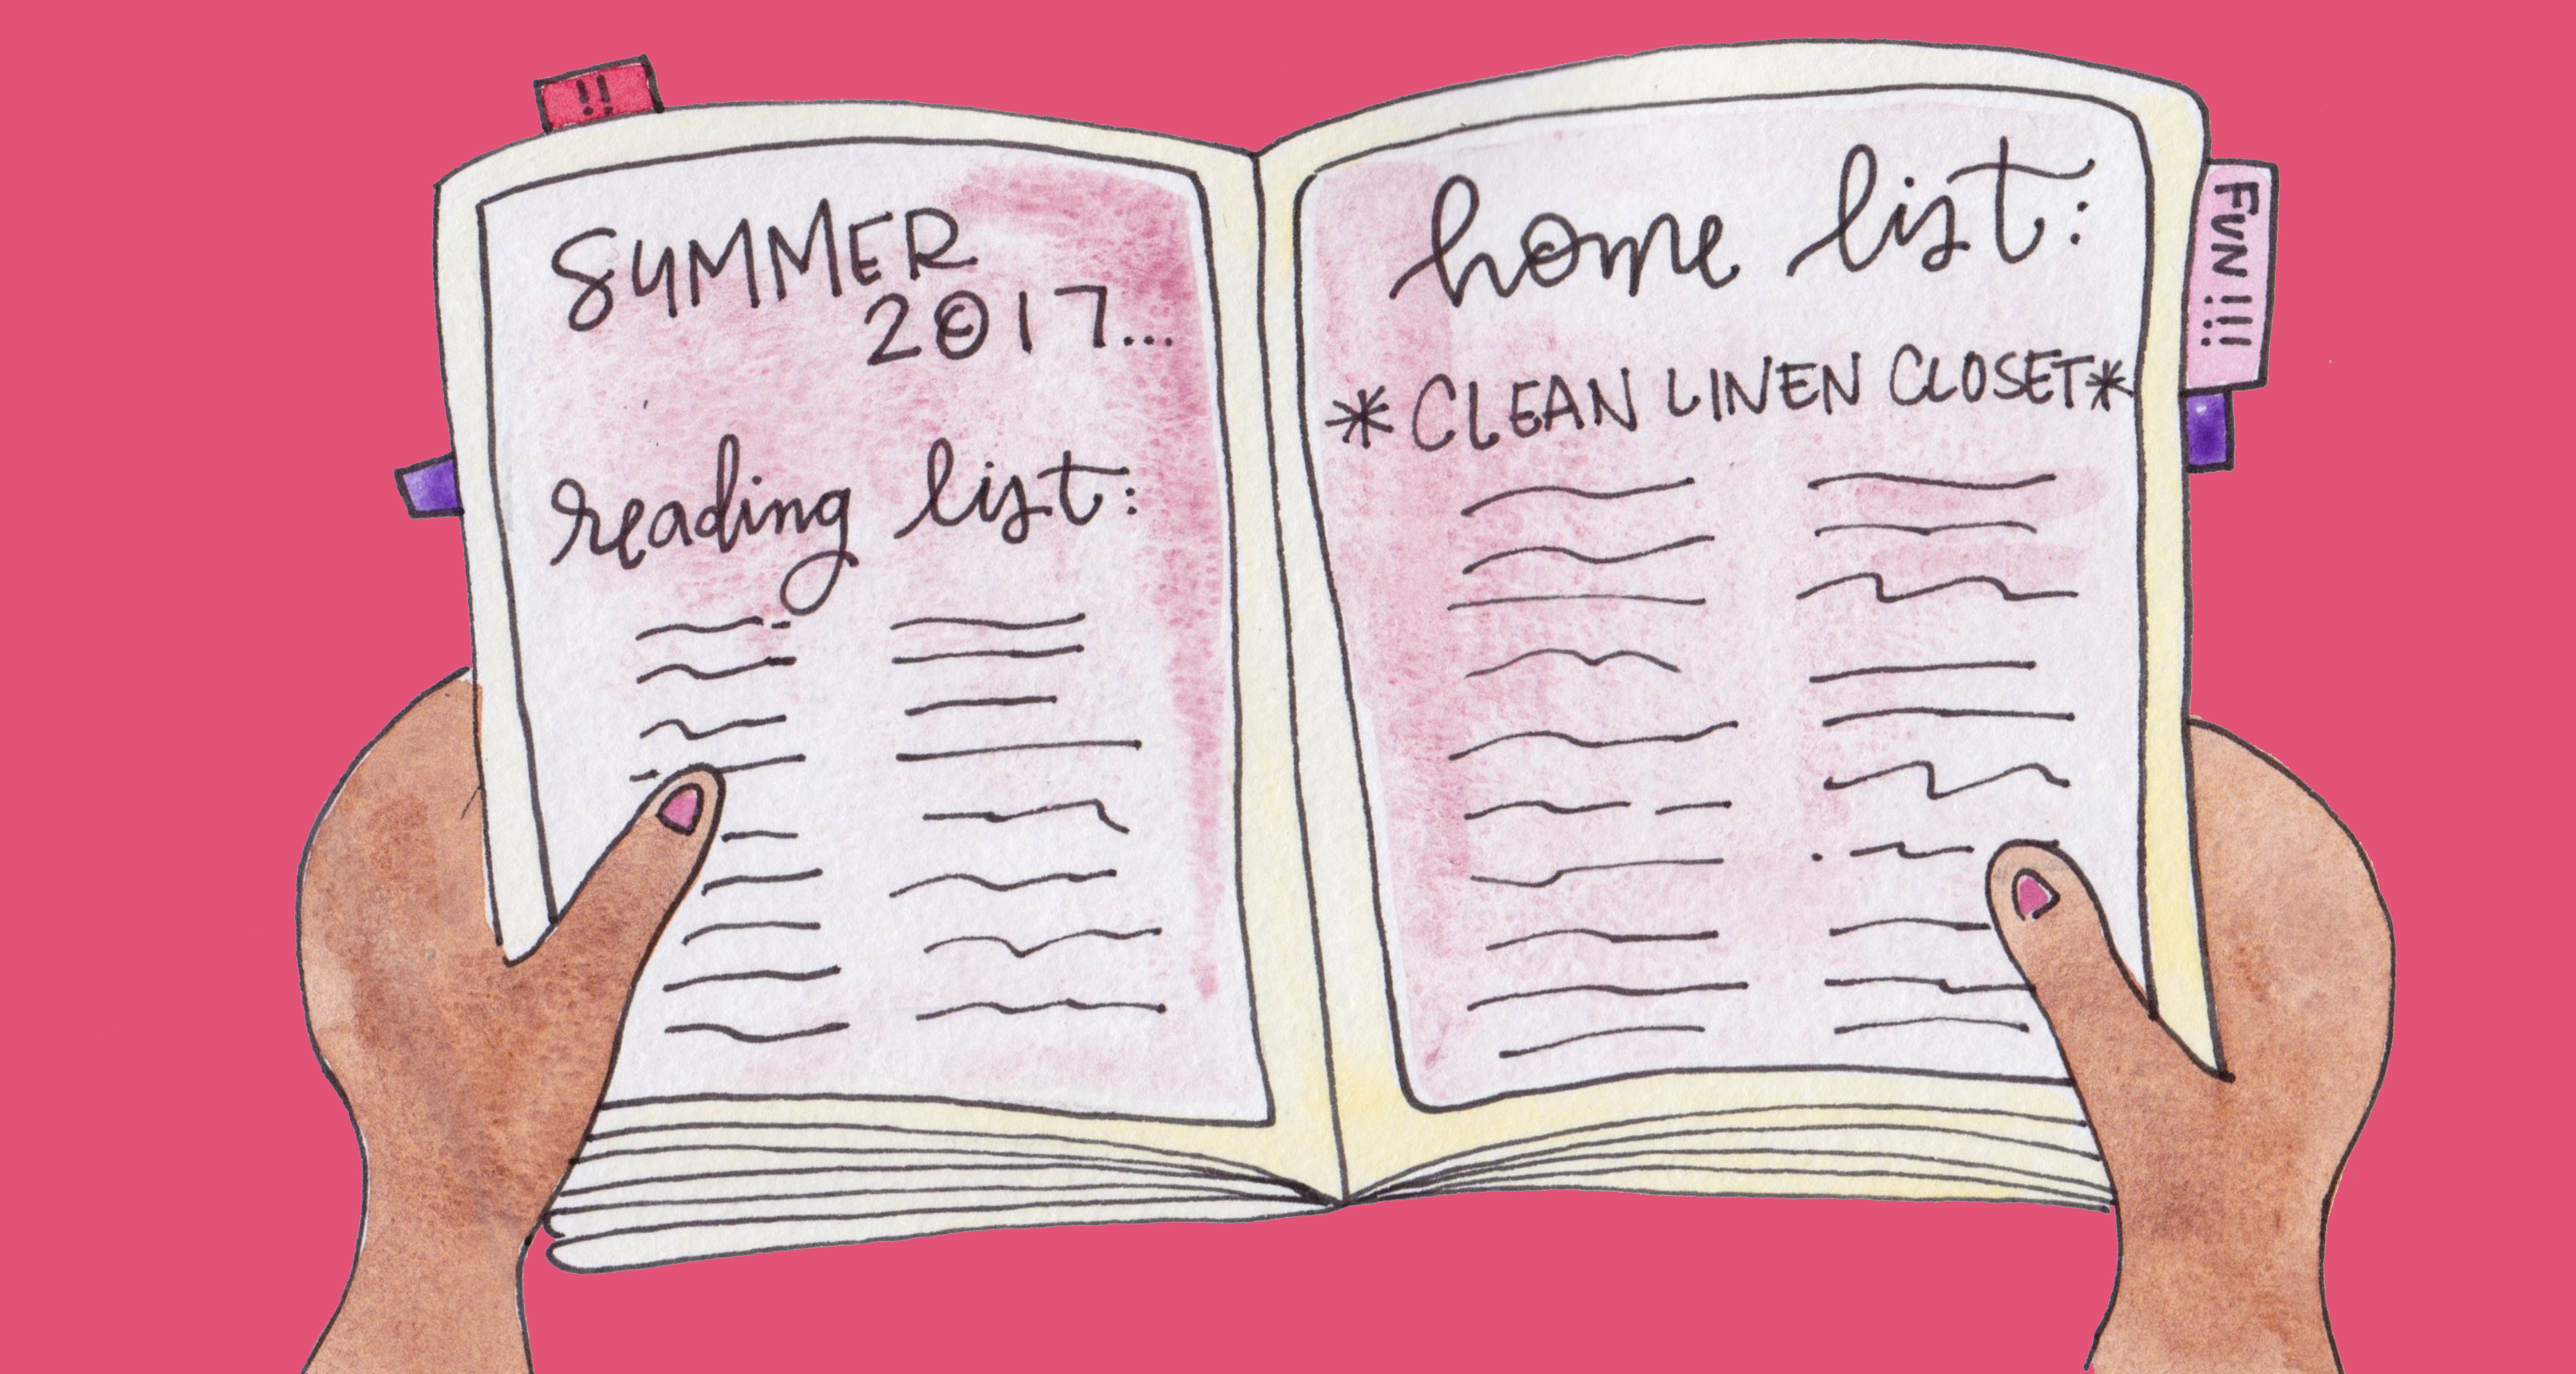 !!
SUMMER
2017...
reading list:
home list:
*CLEAN LINEN CLOSET*
FUN!!!